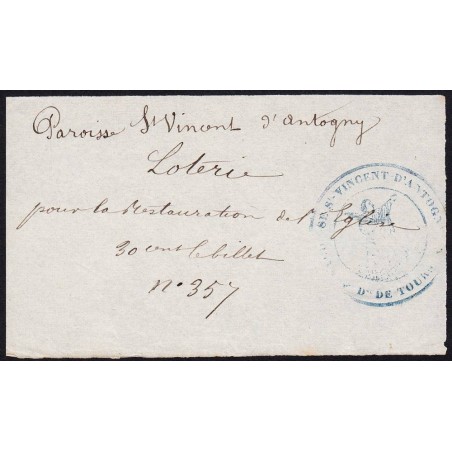 Paroisse St Vincent d'Antogny
Loterie
pour la Restauration de l'Eglise
30 cent le billet
n° 357
ST VINCENT D'ANTOGN
Dse DE TOURS